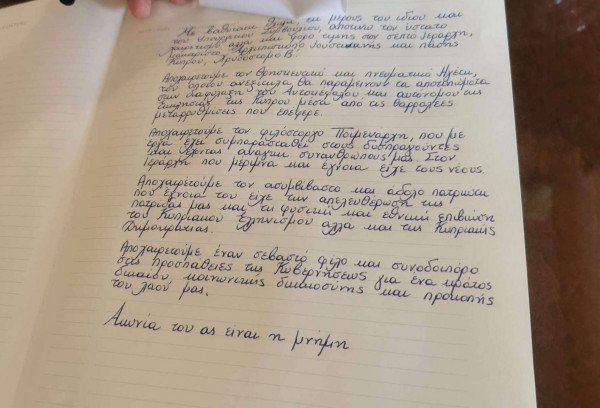 Με βαθύτατη θλίψη, εκ μέρους του ιδίου και
του Υπουργικού Συμβουλίου, αποτίνω τον ύστατο
χαιρετισμό αλλά και φόρο τιμής στο σεπτό Ιεράρχη,
μακαριστό Αρχιεπίσκοπο Ιουστινιανής και πάσης
Κύπρου, Χρυσόστομο Β'.
Αποχαιρετούμε τον θρησκευτικό και πνευματικό Ηγέτη,
του οποίου ανεξίτηλα θα παραμείνουν τα αποτυπώματα
στην διαφύλαξη του Αυτοκέφαλου και αυτόνομου της
Εκκλησίας της Κύπρου μέσα από τις θαρραλέες
μεταρρυθμίσεις που επέφερε.
Αποχαιρετούμε τον φιλόστοργο Ποιμενάρχη, που με
έργα έχει συμπαρασταθεί στους δοσπραγούντες
και έχοντας ανάγκη συνανθρώπους μας. Στον
Ιεράρχη που μέριμνα και έγνοια είχε τους νέους.
Αποχαιρετούμε τον ασυμβίβαστο και άδολο πατριώτη
που έγνοια του είχε την απελευθέρωση της
πατρίδας μας και τη φυσική και εθνική επιβίωση
του Κυπριακού Ελληνισμού αλλά και της Κυπριακής
Δημοκρατίας.
Αποχαιρετούμε έναν σεβαστό φίλο και συνοδοιπόρο
στις προσπάθειες της Κυβερνήσεως για ένα κράτος
δικαίου, κοινωνικής δικαιοσύνης και προκοπής
του λαού μας.
Αιωνία του ας είναι η μνήμη